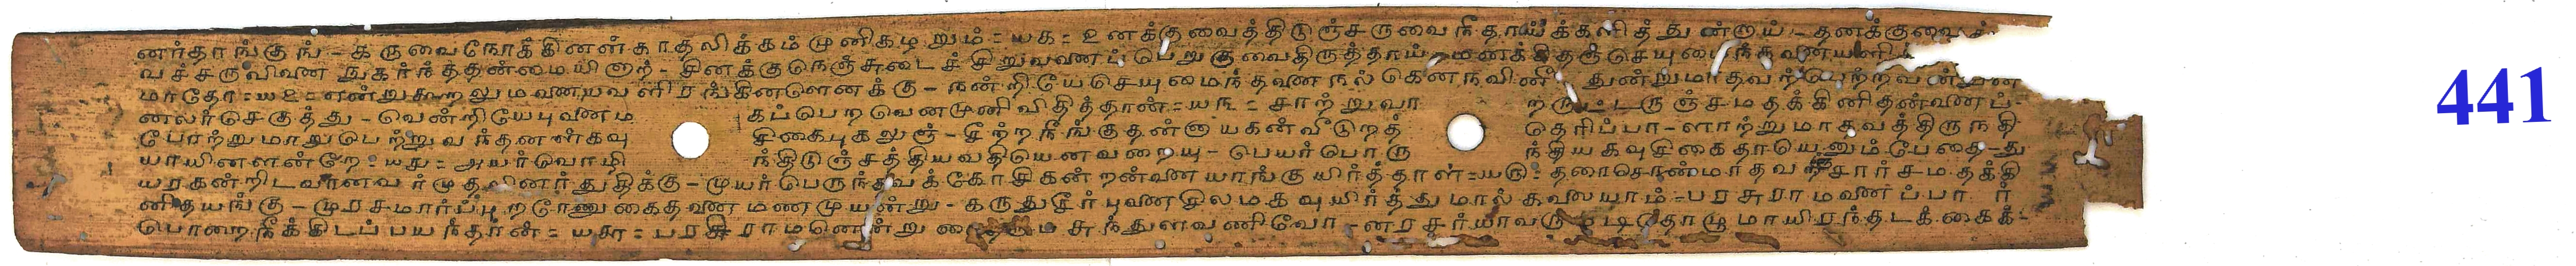 னர்தாங்குங் - கருவைநோக்கினன்காதலிக்கம்முனிகழறும் = யக = உனக்குவைத்திடுஞ்சருவைநீதாய்க்களித்துண்றாய் - தனக்குவைச்
வச்சருவிவண நுகர்ந்த்தன்மையினாற் - சினக்குநெஞ்சுடைச் சிறுவனைப் பெறுகுவைதிருத்தாய்
மாதோ = ய௨ = என்றுகூறலும்வணயவளிரங்கினளெனக்கு - நன்றியேசெயுமைந்தனை நல்கென நவினீ துன்றுமாதவற்பெற்றவ
ணலர்செகுத்து - வென்றியேபுவணம கப்பெறவெனமுனிவிதித்தான் = ய௩ = சாற்றுவா ற்குட்டருஞ்சமதக்கினிதன்வணப் -
போற்றுமாறுபெற்றுவந்தனள்கவு சிகைபுகலுஞ் - சீற்றநீங்குதன்னாயகன்வீடுறத் தெரிப்பா - ளாற்றுமாதவத்திருநதி
யாயினளன்றே = ய௪ = அயர்வொழி ந்திடுஞ்சத்தியவதியெனவறையு - பெயர்பொரு ந்தியகவுசிகைதாயெனும்பேதை - து
யரகன்றிடவானவர்முதலினர்துதிக்கு - முயர்பெருந்தவக்கோசிகன்றன்வணயாங்குயிர்த்தாள் = ய௫ = தரைசொண்மாதவஞ்சார்சமதக்தி
னிதயங்கு - முரசமார்ப்புறரேணுகைதவண மணமுயன்று - கருதுசீர்புவணசிலமகவுயிர்த்துமால்கவலயாம் = பரசுராமவணப்பார்
பொறைநீக்கிடப்பயந்தாள் = ய௬ = பரசுராமனென்று சுந்துளவணிவோ - னரசர்யாவரு தோழுமாயிரந்தடக்கைக் -
441